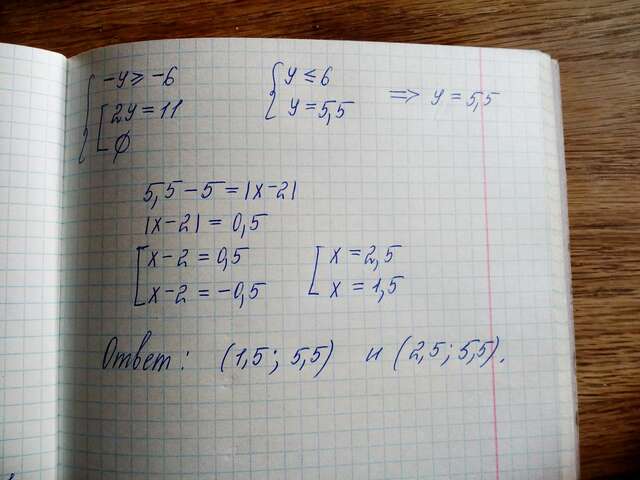 { -y ≥ -6 { y ≤ 6
[ 2y = 11 y = 5,5 => y = 5,5
∅
5,5 - 5 = |x-2|
|x-2| = 0,5
[ x-2 = 0,5 [ x = 2,5
x-2 = -0,5 x = 1,5
Ответ: (1,5; 5,5) и (2,5; 5,5).